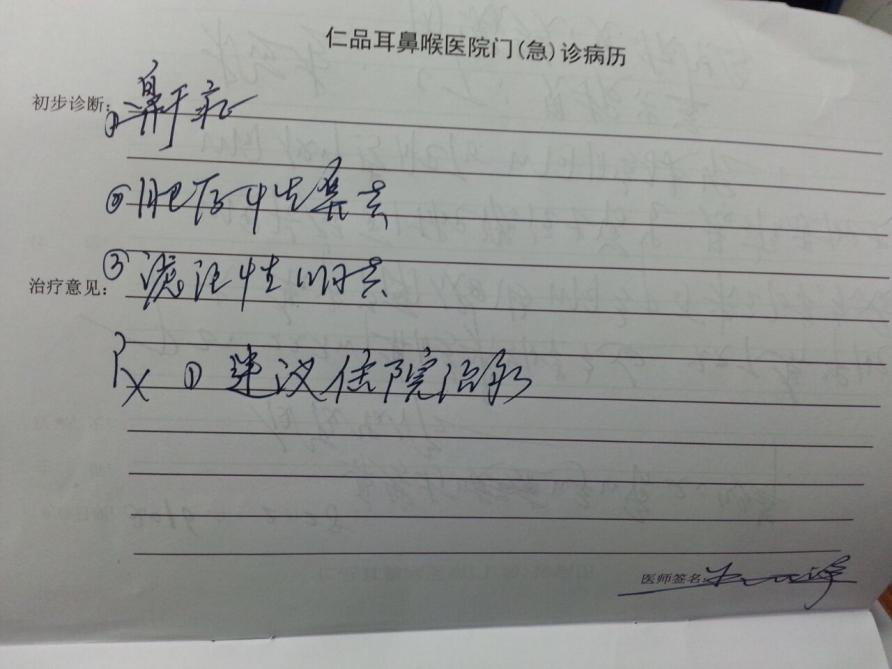 仁品耳鼻喉医院门(急)诊病历
初步诊断: ① 鼻干症
② 肥厚性鼻炎
③ 滤泡性咽炎
治疗意见:
Rx ① 建议住院治疗
医师签名: